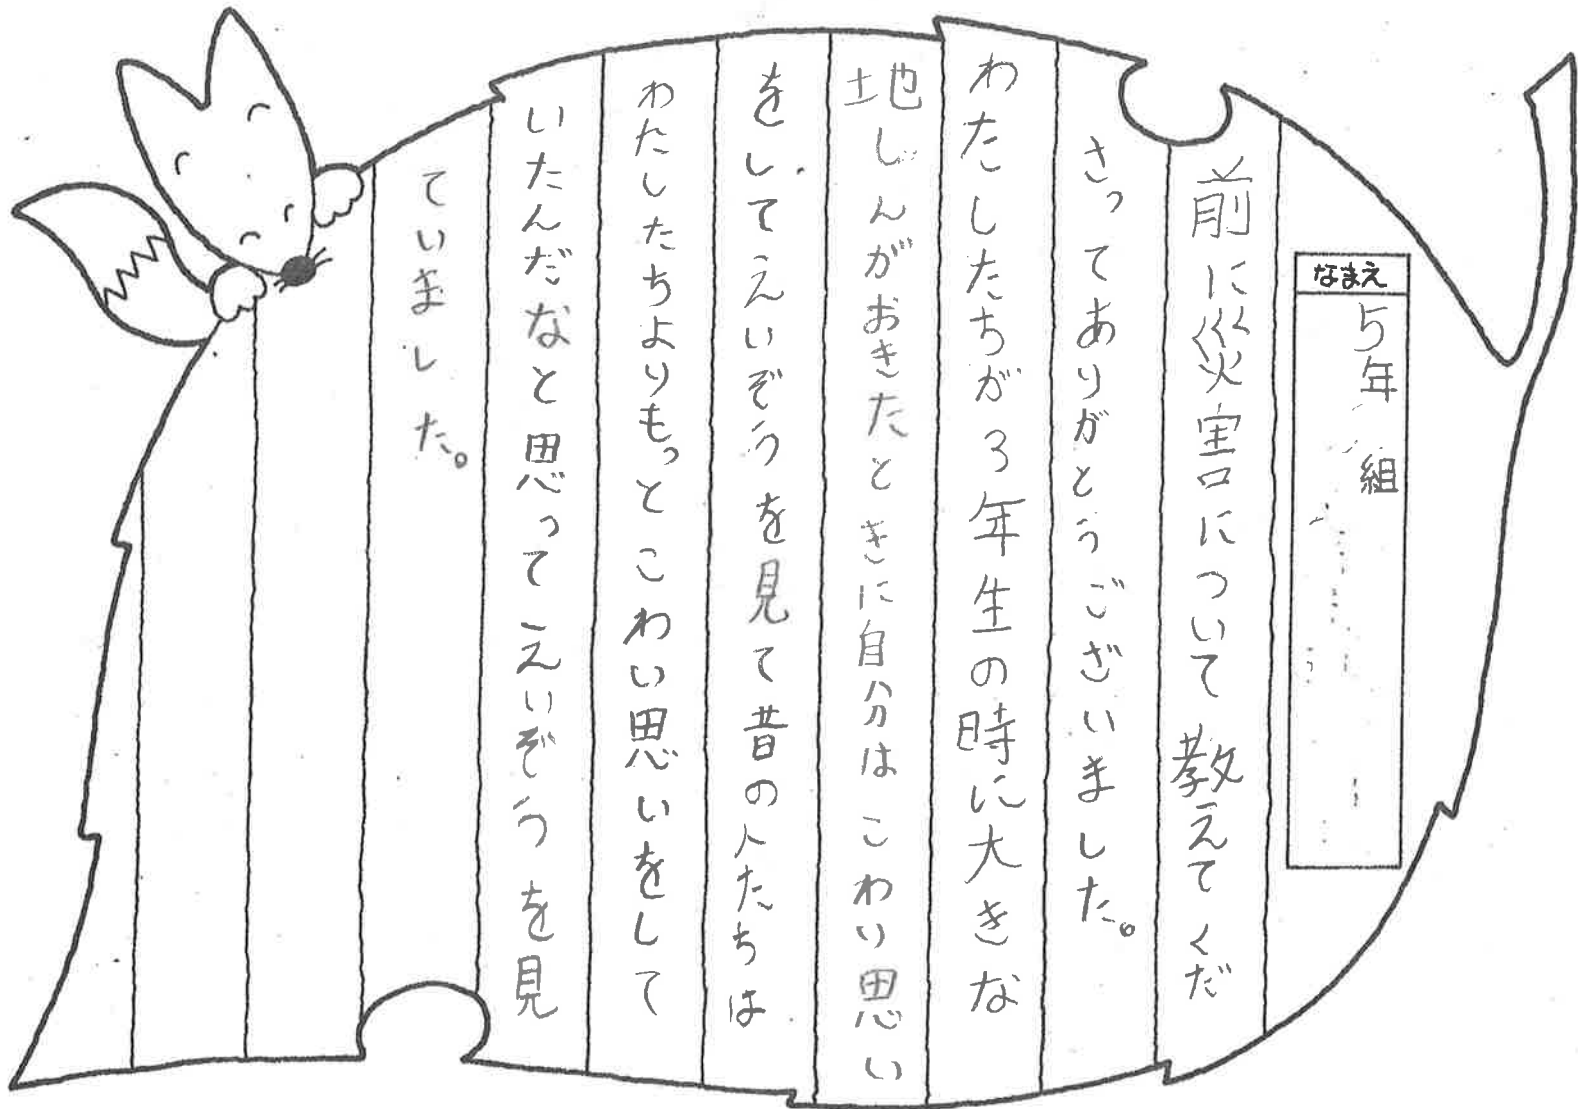 なまえ
5年 組
前に災害について教えてくだ
さってありがとうございました。
わたしたちが3年生の時に大きな
地しんがおきたときに自分はこわい思い
をしてえいぞうを見て昔の人たちは
わたしたちよりもっとこわい思いをして
いたんだなと思ってえいぞうを見
ていました。